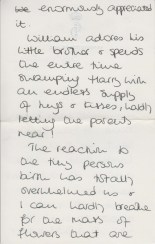 We enormously appreciated
it.
William adores his
little brother & spends
the entire time
swamping Harry with
an endless supply
of hugs & kisses, hardly
letting the parents
near!
The reaction to
one tiny person's
birth has totally
overwhelmed us &
I can hardly breathe
for the mass of
flowers that are